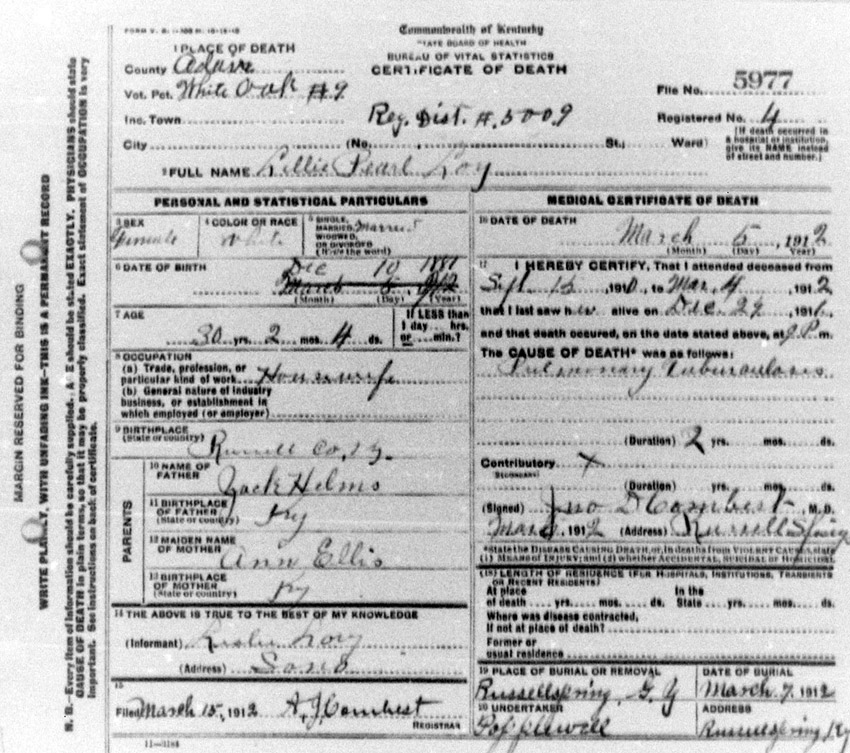 Commonwealth of Kentucky
STATE BOARD OF HEALTH
BUREAU OF VITAL STATISTICS
CERTIFICATE OF DEATH
1 PLACE OF DEATH
County Adair
Vot. Pct. White Oak #9
Inc. Town
Reg. Dist. #. 5009
File No. 5977
Registered No. 4
City (No. St.; Ward)
(If death occurred in a hospital or institution, give its NAME instead of street and number.)
2 FULL NAME Lillie Pearl Loy
PERSONAL AND STATISTICAL PARTICULARS
3 SEX Female
4 COLOR OR RACE White
5 SINGLE, MARRIED, WIDOWED, OR DIVORCED (Write the word) Married
6 DATE OF BIRTH
Dec 10 1881
March 5 1912
(Month) (Day) (Year)
7 AGE
30 yrs. 2 mos. 4 ds.
If LESS than 1 day hrs. or min.?
8 OCCUPATION
(a) Trade, profession, or
particular kind of work Housewife
(b) General nature of industry
business, or establishment in
which employed (or employer)
9 BIRTHPLACE
(State or country) Russell Co, Ky.
PARENTS
10 NAME OF FATHER Zack Helms
11 BIRTHPLACE OF FATHER (State or country) Ky
12 MAIDEN NAME OF MOTHER Ann Ellis
13 BIRTHPLACE OF MOTHER (State or country) Ky
14 THE ABOVE IS TRUE TO THE BEST OF MY KNOWLEDGE
(Informant) Loy
(Address)
15
Filed March 15, 1912 A. J. Combest
REGISTRAR
11-3184
MEDICAL CERTIFICATE OF DEATH
16 DATE OF DEATH
March 5, 1912
(Month) (Day) (Year)
17 I HEREBY CERTIFY, That I attended deceased from
Sept. 15, 1910, to Mar. 4, 1912
that I last saw her alive on Dec. 29, 191
and that death occured, on the date stated above, at P. m.
The CAUSE OF DEATH* was as follows:
Pulmonary Tuberculosis
(Duration) 2 yrs. mos. ds.
Contributory X
SECONDARY
(Duration) yrs. mos. ds.
(Signed) Jno D Combest, M. D.
Mar, 1912 (Address) Russell Spring
*State the DISEASE CAUSING DEATH, or, in deaths from VIOLENT CAUSES, state
(1) MEANS OF INJURY; and (2) whether ACCIDENTAL, SUICIDAL or HOMICIDAL
(18) LENGTH OF RESIDENCE (FOR HOSPITALS, INSTITUTIONS, TRANSIENTS
OR RECENT RESIDENTS)
At place of death yrs. mos. ds. In the State yrs. mos. ds.
Where was disease contracted,
If not at place of death?
Former or
usual residence
19 PLACE OF BURIAL OR REMOVAL Russellspring
DATE OF BURIAL March 7, 1912
20 UNDERTAKER
ADDRESS Russellspring Ky
MARGIN RESERVED FOR BINDING
WRITE PLAINLY, WITH UNFADING INK—THIS IS A PERMANENT RECORD
N. B.—Every item of information should be carefully supplied. AGE should be stated EXACTLY. PHYSICIANS should state
CAUSE OF DEATH in plain terms, so that it may be properly classified. Exact statement of OCCUPATION is very
important. See instructions on back of certificate.